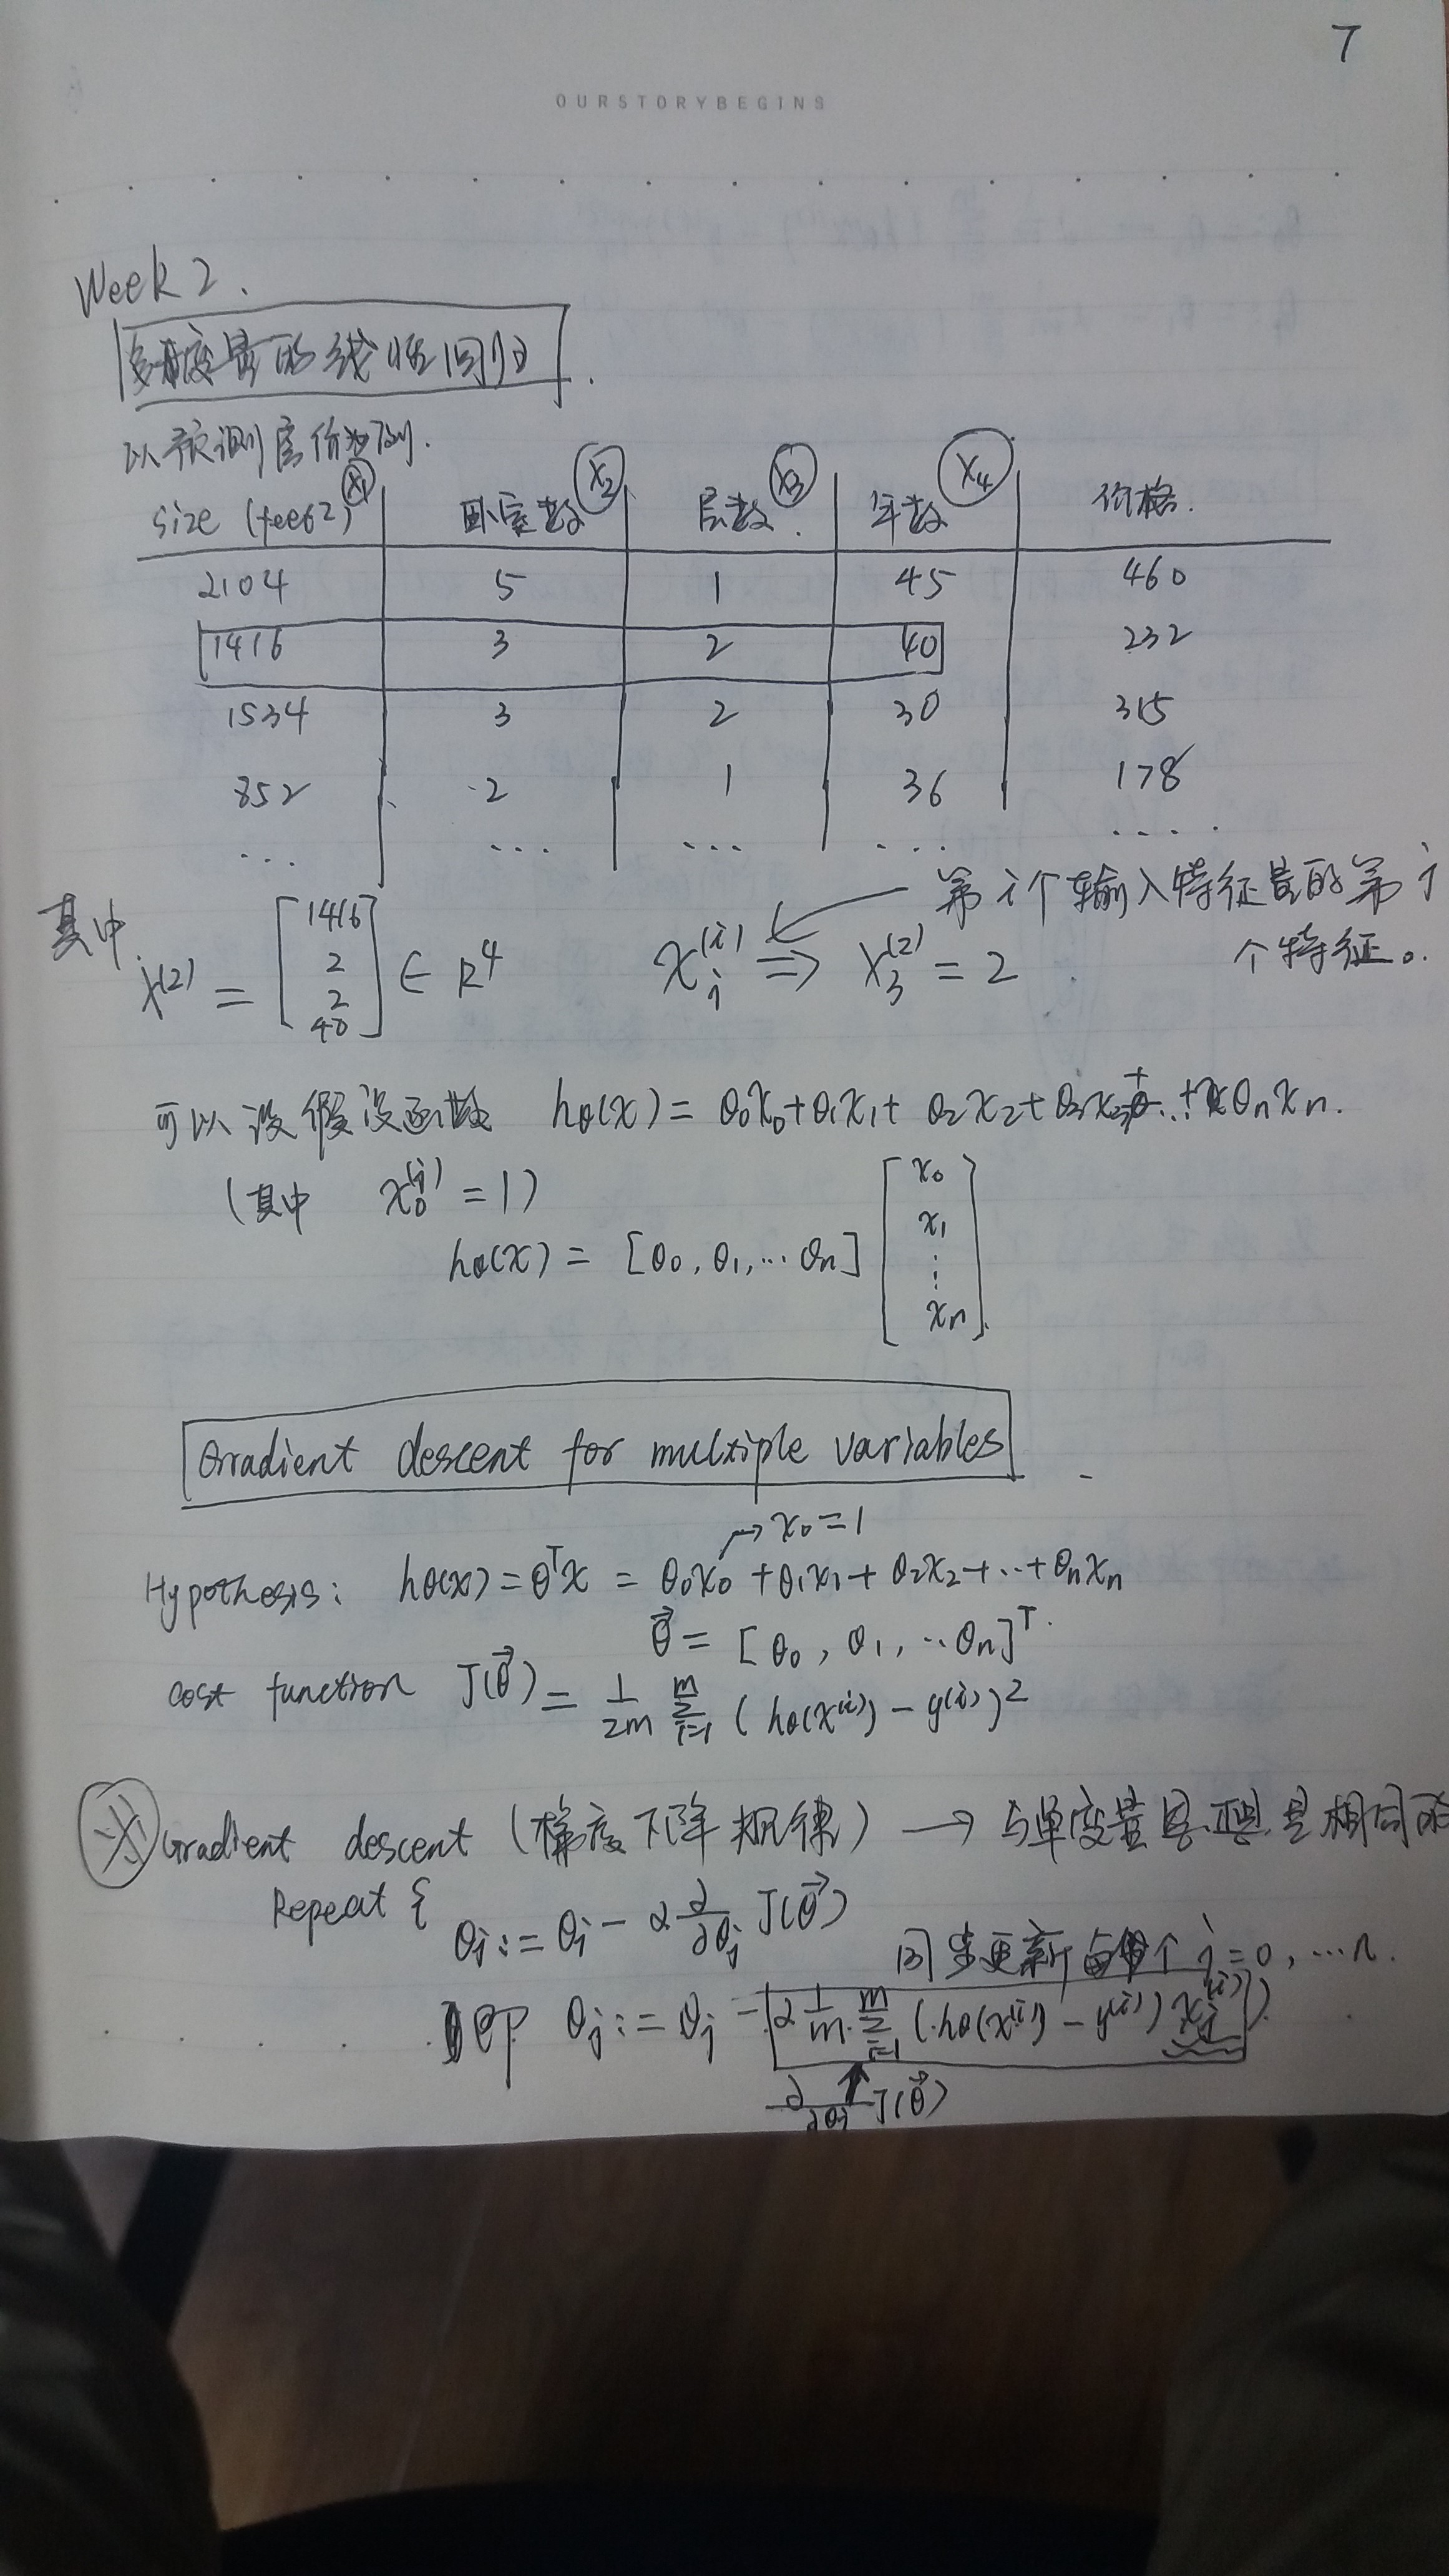 7
OURSTORYBEGINS
Week 2.
多度量的线性回归.
以预测房价为例.
size (feet2) x1 | 卧室数 x2 | 层数. x3 | 年数 x4 | 价格.
2104 | 5 | 1 | 45 | 460
1416 | 3 | 2 | 40 | 232
1534 | 3 | 2 | 30 | 315
852 | 2 | 1 | 36 | 178
... | ... | ... | ... | ....
第 i 个输入特征量的第 j
个特征。
其中 x^(2) = [1416 2 2 40] ∈ R^4 x_j^(i) ⇒ x_3^(2) = 2
可以设假设函数 hθ(x) = θ0x0+θ1x1+ θ2x2+θ3x3+...+θnxn.
(其中 x_0^(i) = 1)
hθ(x) = [θ0, θ1, ... θn] [x0 x1 ⋮ xn]
Gradient descent for multiple variables
→ x0 = 1
Hypothesis: hθ(x) = θ^T x = θ0x0 + θ1x1 + θ2x2 + ... + θnxn
θ⃗ = [θ0, θ1, ... θn]^T.
cost function J(θ⃗) = 1/2m Σ_{i=1}^m (hθ(x^(i)) - y^(i))^2
Gradient descent (梯度下降规律) → 与单度量是相同的
Repeat {
θj := θj - α ∂/∂θj J(θ⃗)
同步更新每个 j = 0, ... n.
即 θj := θj - α 1/m Σ_{i=1}^m (hθ(x^(i)) - y^(i)) x_j^(i) )
∂/∂θj J(θ⃗)